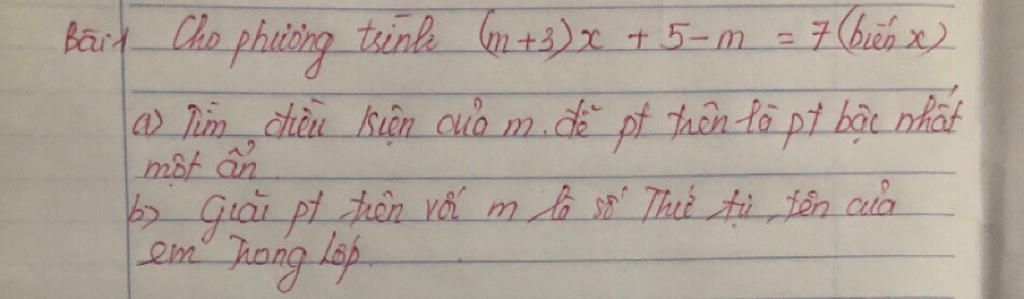 Bài 1 Cho phương trình (m+3)x + 5-m = 7 (biến x)
a) Tìm điều kiện của m. để pt trên là pt bậc nhất
một ẩn.
b) Giải pt trên với m là số Thứ tự tên của
em Trong lớp.